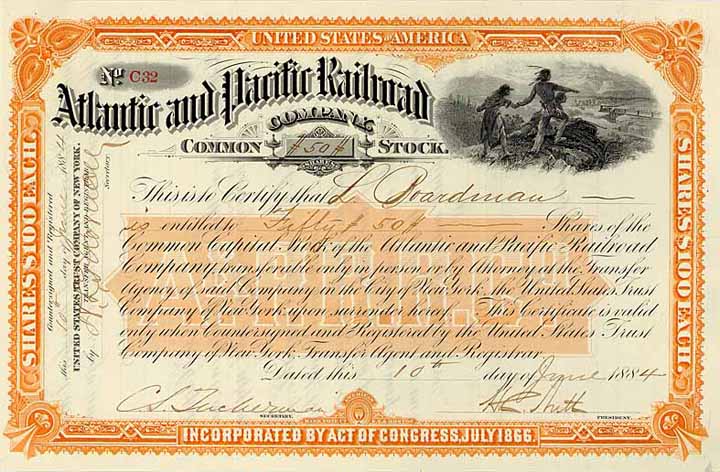 UNITED STATES OF AMERICA
No C32
Atlantic and Pacific Railroad
COMPANY.
COMMON # 50 # STOCK.
SHARES
This is to Certify that L Boardman
is entitled to Fifty # 50 # Shares of the
Common Capital Stock of the Atlantic and Pacific Railroad
Company, transferable only in person or by Attorney at the Transfer
Agency of said Company in the City of New York, the United States Trust
Company of New York upon surrender hereof. This Certificate is valid
only when Countersigned and Registered by the United States Trust
Company of New York Transfer Agent and Registrar.
Dated this 10th day of June 1884
SECRETARY.
PRESIDENT.
INCORPORATED BY ACT OF CONGRESS, JULY 1866.
SHARES $100 EACH.
SHARES $100 EACH.
Countersigned and Registered
this 10 day of June 1884
UNITED STATES TRUST COMPANY OF NEW YORK.
TRANSFER AGENT AND REGISTRAR
by
Secretary.
A. & P. R. R. Co.